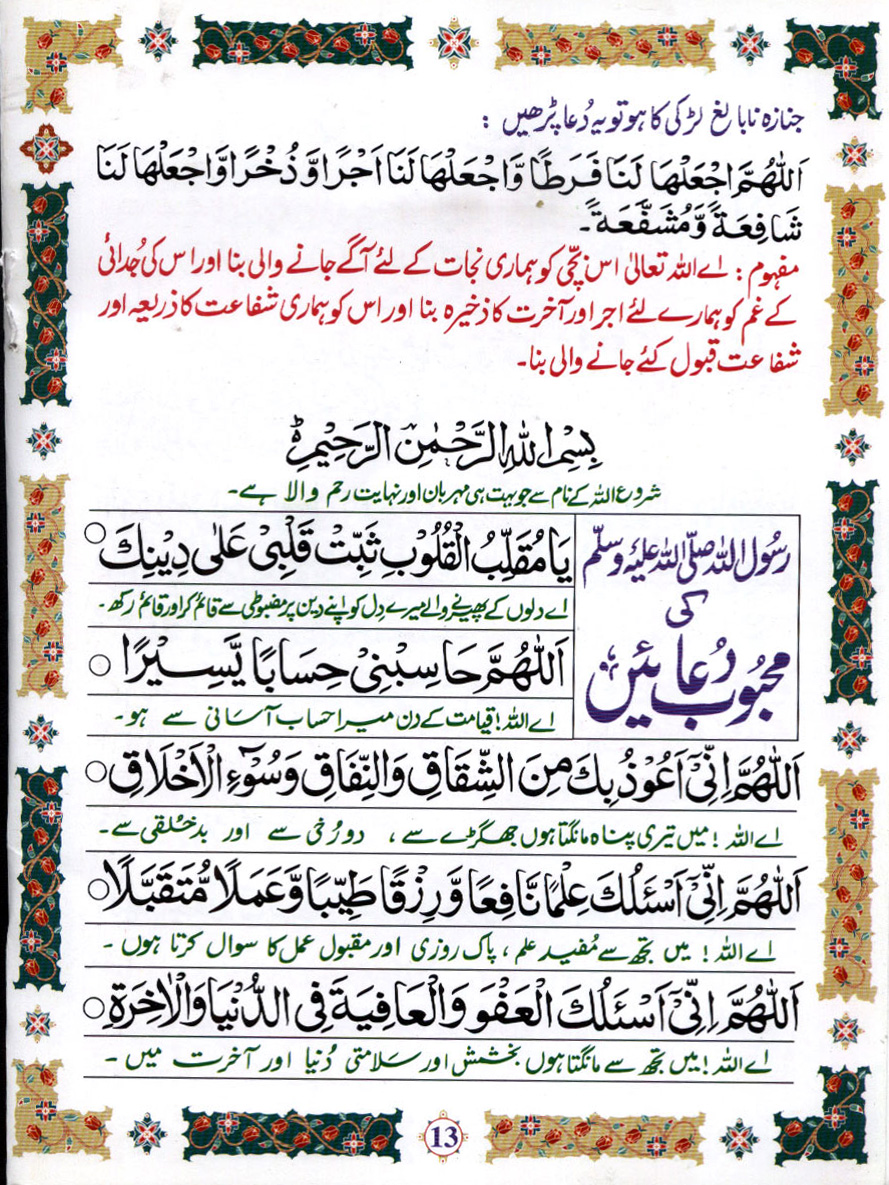 جنازہ نابالغ لڑکی کا ہو تو یہ دُعا پڑھیں :
اَللّٰهُمَّ اجْعَلْهَا لَنَا فَرَطًا وَّاجْعَلْهَا لَنَا اَجْرًا وَّذُخْرًا وَّاجْعَلْهَا لَنَا
شَافِعَةً وَّمُشَفَّعَةً۔
مفہوم : اے اللہ تعالیٰ اس بچّی کو ہماری نجات کے لئے آگے جانے والی بنا اور اس کی جُدائی
کے غم کو ہمارے لئے اجر اور آخرت کا ذخیرہ بنا اور اس کو ہماری شفاعت کا ذریعہ اور
شفاعت قبول کئے جانے والی بنا۔
بِسْمِ اللّٰهِ الرَّحْمٰنِ الرَّحِيْمِ
شروع اللہ کے نام سے جو بہت ہی مہربان اور نہایت رحم والا ہے۔
رسُول اللہ صلّی اللہ علیہ وسلّم
کی
محبُوب دُعائیں
يَا مُقَلِّبُ الْقُلُوْبِ ثَبِّتْ قَلْبِىْ عَلٰى دِيْنِكَ ○
اے دلوں کے پھیرنے والے میرے دِل کو اپنے دین پر مضبوطی سے قائم کر اور قائم رکھ۔
اَللّٰهُمَّ حَاسِبْنِىْ حِسَابًا يَّسِيْرًا ○
اے اللہ! قیامت کے دن میرا حساب آسانی سے ہو۔
اَللّٰهُمَّ اِنِّىْٓ اَعُوْذُ بِكَ مِنَ الشِّقَاقِ وَالنِّفَاقِ وَسُوْٓءِ الْاَخْلَاقِ ○
اے اللہ ! میں تیری پناہ مانگتا ہوں جھگڑے سے ، دو رُخی سے اور بدخلقی سے۔
اَللّٰهُمَّ اِنِّىْٓ اَسْئَلُكَ عِلْمًا نَّافِعًا وَّرِزْقًا طَيِّبًا وَّعَمَلًا مُّتَقَبَّلًا ○
اے اللہ ! میں تجھ سے مُفید علم ، پاک روزی اور مقبول عمل کا سوال کرتا ہوں ۔
اَللّٰهُمَّ اِنِّىْٓ اَسْئَلُكَ الْعَفْوَ وَالْعَافِيَةَ فِى الدُّنْيَا وَالْاٰخِرَةِ ○
اے اللہ ! میں تجھ سے مانگتا ہوں بخشش اور سلامتی دُنیا اور آخرت میں ۔
13